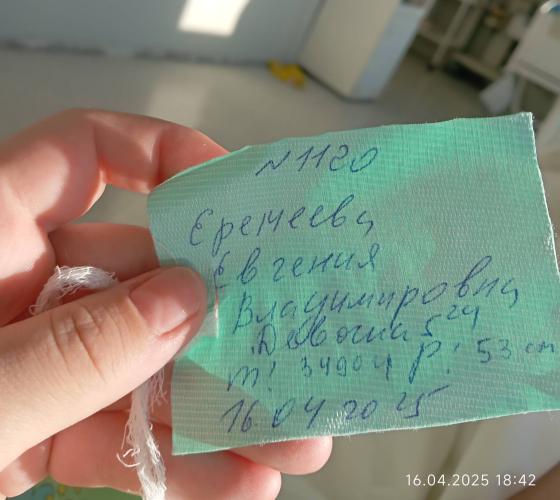 N 1120
Еремеева
Евгения
Владимировна
Девочка 5 24
m: 3490г р: 53 см
16 04 2025
16.04.2025 18:42